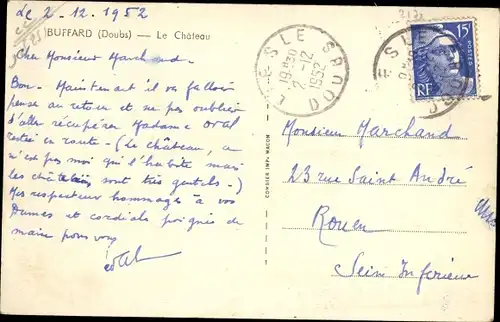 Le 2.12.1952
BUFFARD (Doubs) — Le Château
Cher Monsieur Marchand.
Bon. Maintenant il va falloir
penser au retour et ne pas oublier
d'aller récupérer Madame Oval
restée en route - (Le château, ce
n'est pas moi qui l'habite mais
les châtelains sont très gentils -)
Mes respectueux hommages à vos
Dames et cordiale poignée de
main pour vous
LESLE DOUBS
19H30
2-12
1952
15F
POSTES
RF
COMBIER IMP. MACON
Monsieur Marchand
23 rue Saint André
Rouen
Seine Inférieure